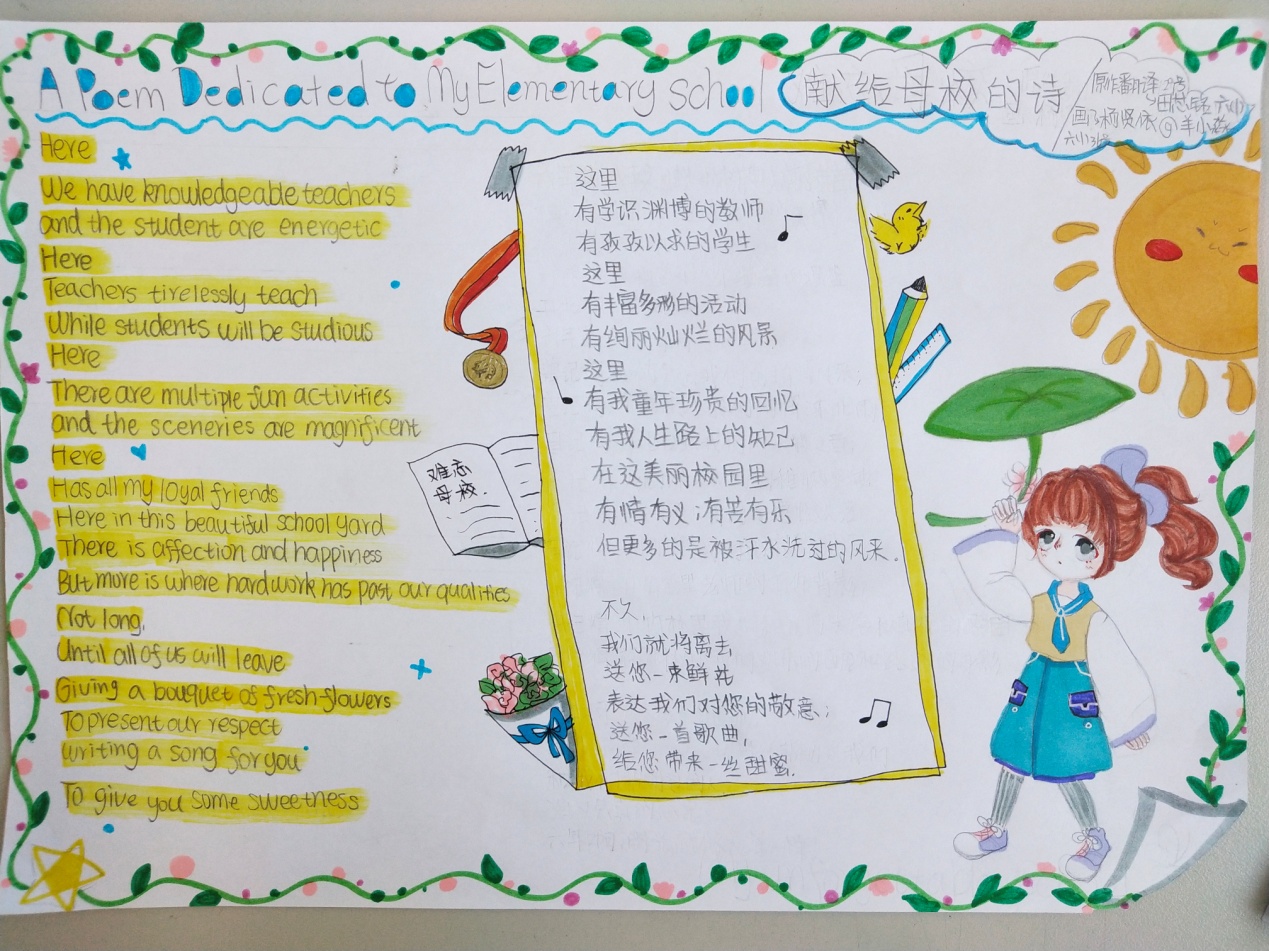 A Poem Dedicated to My Elementary School 献给母校的诗
原作翻译
Here
We have knowledgeable teachers
and the student are energetic
Here
Teachers tirelessly teach
While students will be studious
Here
There are multiple fun activities
and the sceneries are magnificent
Here
Has all my loyal friends
Here in this beautiful school yard
There is affection and happiness
But more is where hardwork has past our qualities
Not long,
Until all of us will leave
Giving a bouquet of fresh flowers
To present our respect
writing a song for you
To give you some sweetness
这里
有学识渊博的教师
有孜孜以求的学生
这里
有丰富多彩的活动
有绚丽灿烂的风景
这里
有我童年珍贵的回忆
有我人生路上的知己
在这美丽校园里
有情有义;有苦有乐
但更多的是被汗水洗过的风采.
不久,
我们就将离去
送您一束鲜花
表达我们对您的敬意;
送您一首歌曲,
给您带来一丝甜蜜.
难忘
母校.